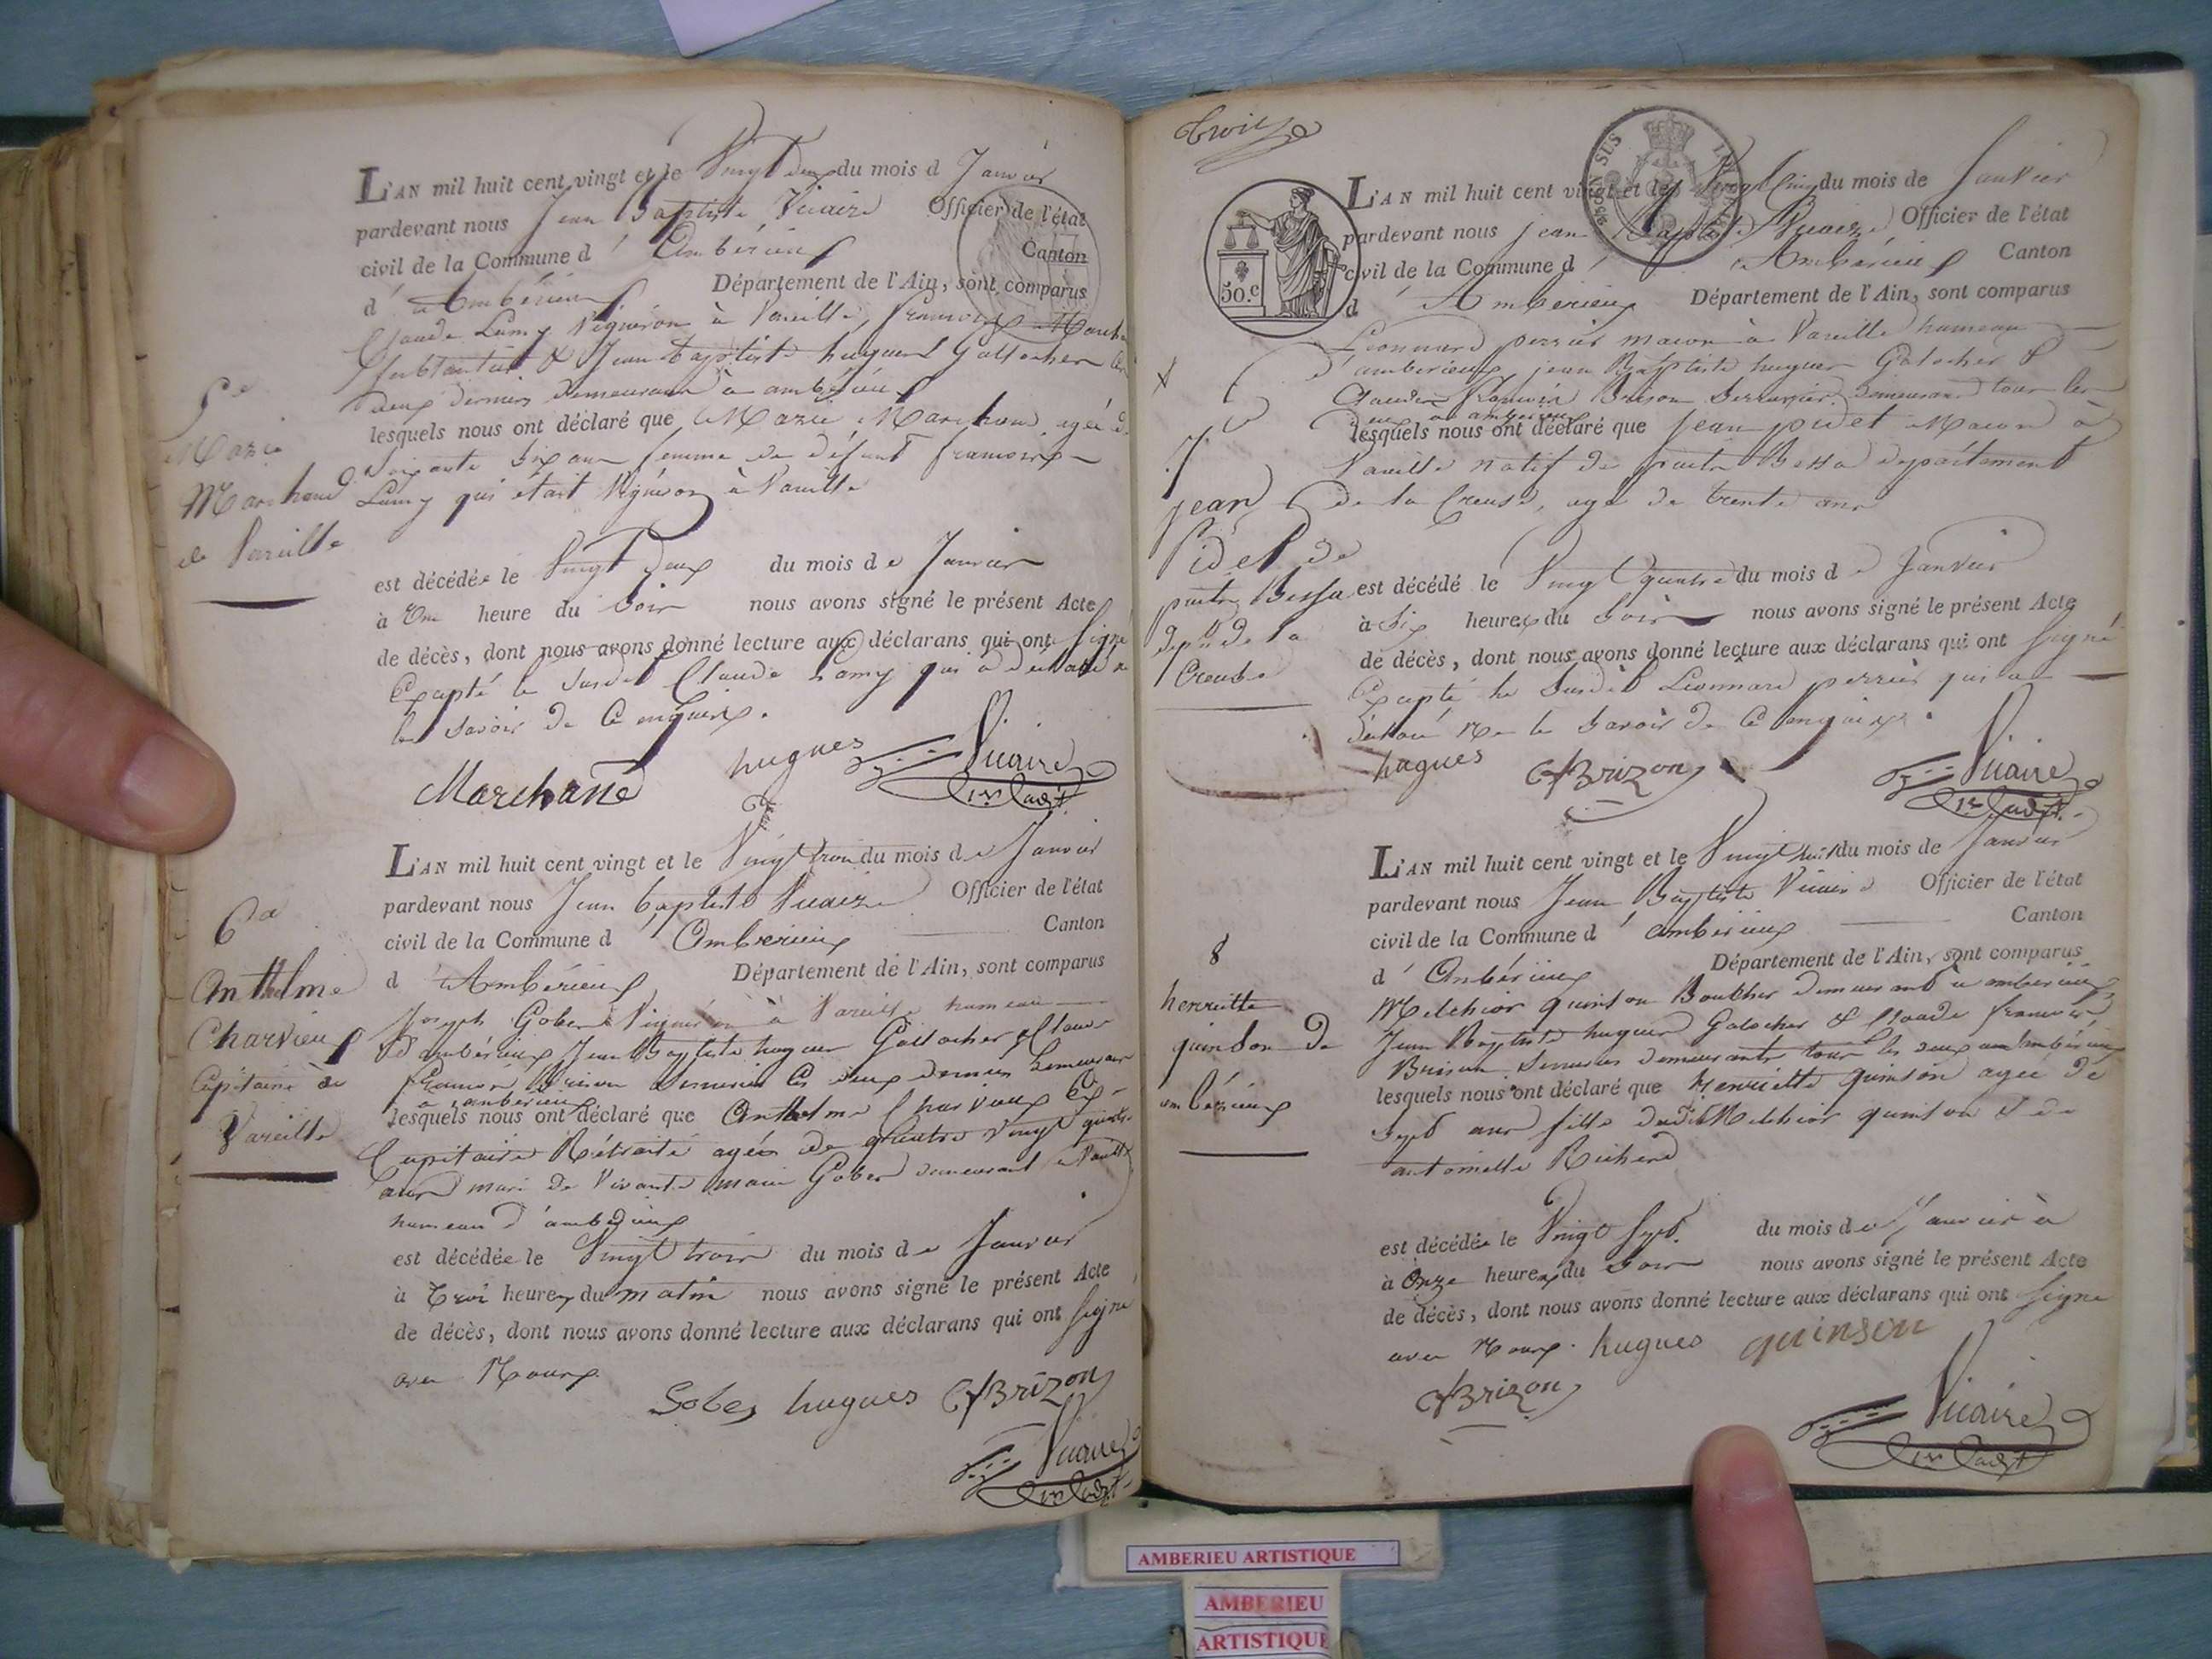 L'AN mil huit cent vingt et le Vingt deux du mois d Janvier
pardevant nous Jean Baptiste Vicaire Officier de l'état
civil de la Commune d' Ambérieux Canton
d' Ambérieux Département de l'Ain, sont comparus
Claude Lamy Vigneron à Vareille, françois Marchand
& Jean baptiste hugues Gallocher les
deux derniers demeurant à ambérieux
lesquels nous ont déclaré que Marie Marchand agée de
Soixante Six ans femme de défunt françois
Lamy qui était Vigneron à Vareille
5e
Marie
Marchand
de Vareille
est décédée le Vingt Deux du mois de Janvier
à Une heure du Soir nous avons signé le présent Acte
de décès, dont nous avons donné lecture aux déclarans qui ont Signé
Excepté le Susdit Claude Lamy qui a déclaré ne
le savoir de Ce enquis.
Marchand hugues Vicaire
L'AN mil huit cent vingt et le Vingt trois du mois de Janvier
pardevant nous Jean baptiste Vicaire Officier de l'état
civil de la Commune d' Ambérieux Canton
d' Ambérieux Département de l'Ain, sont comparus
Joseph Gober Vigneron à Vareille hameau
d'ambérieux Jean Baptiste hugues Gallocher & Claude
françois Brison Serrurier les deux derniers demeurant
à ambérieux
lesquels nous ont déclaré que Anthelme Charvieux Ex-
Capitaine Rétraité agée de quatre Vingt quatre
ans mari de Vivante marie Gober demeurant à Vareille
hameau d'ambérieux
6e
Anthelme
Charvieux
Capitaine de
Vareille
est décédée le Vingt trois du mois de Janvier
à Troi heures du matin nous avons signé le présent Acte
de décès, dont nous avons donné lecture aux déclarans qui ont Signé
avec Nous
Gober hugues CfBrizon
Vicaire
Trois
SUS
50.c
L'AN mil huit cent vingt et le Vingt Cinq du mois de Janvier
pardevant nous jean Baptiste Vicaire Officier de l'état
civil de la Commune d' Ambérieux Canton
d' Ambérieux Département de l'Ain, sont comparus
Léonnard perrier macon à Vareille hameau
d'ambérieux, jean Baptiste hugues Galocher &
Claude francois Brison Serrurier demeurand tous les
deux à ambérieux
lesquels nous ont déclaré que jean pidet Macon à
Vareille natif de département
de la Creuse, agé de trente ans
7
jean
Pidet de
Bessa
de la
Creuse
est décédé le Vingt quatre du mois de Janvier
à Six heures du Soir nous avons signé le présent Acte
de décès, dont nous avons donné lecture aux déclarans qui ont Signé
Excepté le Susdit Léonnard perrier qui a
déclaré Ne le Savoir de Ce enquis.
hugues CfBrizon Vicaire
L'AN mil huit cent vingt et le Vingt huit du mois de Janvier
pardevant nous Jean Baptiste Vicaire Officier de l'état
civil de la Commune d' ambérieux Canton
d' Ambérieux Département de l'Ain, sont comparus
Melchior quinson Boulcher demeurand à ambérieux,
Jean Baptiste hugues Galocher & Claude francois
Brison Serrurier demeurants tous les deux à ambérieux
lesquels nous ont déclaré que henriette quinson agée de
Sept ans fille dudit Melchior quinson & de
antoinette Richerd
8
henriette
quinson de
ambérieux
est décédée le Vingt Sept. du mois de Janvier à
à Onze heures du Soir nous avons signé le présent Acte
de décès, dont nous avons donné lecture aux déclarans qui ont Signé
avec Nous. hugues quinson
CfBrizon Vicaire
AMBERIEU ARTISTIQUE
AMBERIEU
ARTISTIQUE